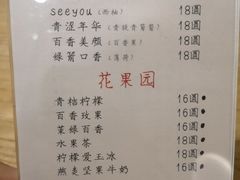 seeyou(西柚) 18圆
青涩年华(青提青葡萄) 18圆
百香美颜(百香果) 18圆
绿箭口香(薄荷) 18圆
花果园
青桔柠檬 16圆
百香玫果 16圆
莱绿百香 16圆
水果茶 18圆
柠檬爱玉冰 18圆
燕麦坚果牛奶 16圆